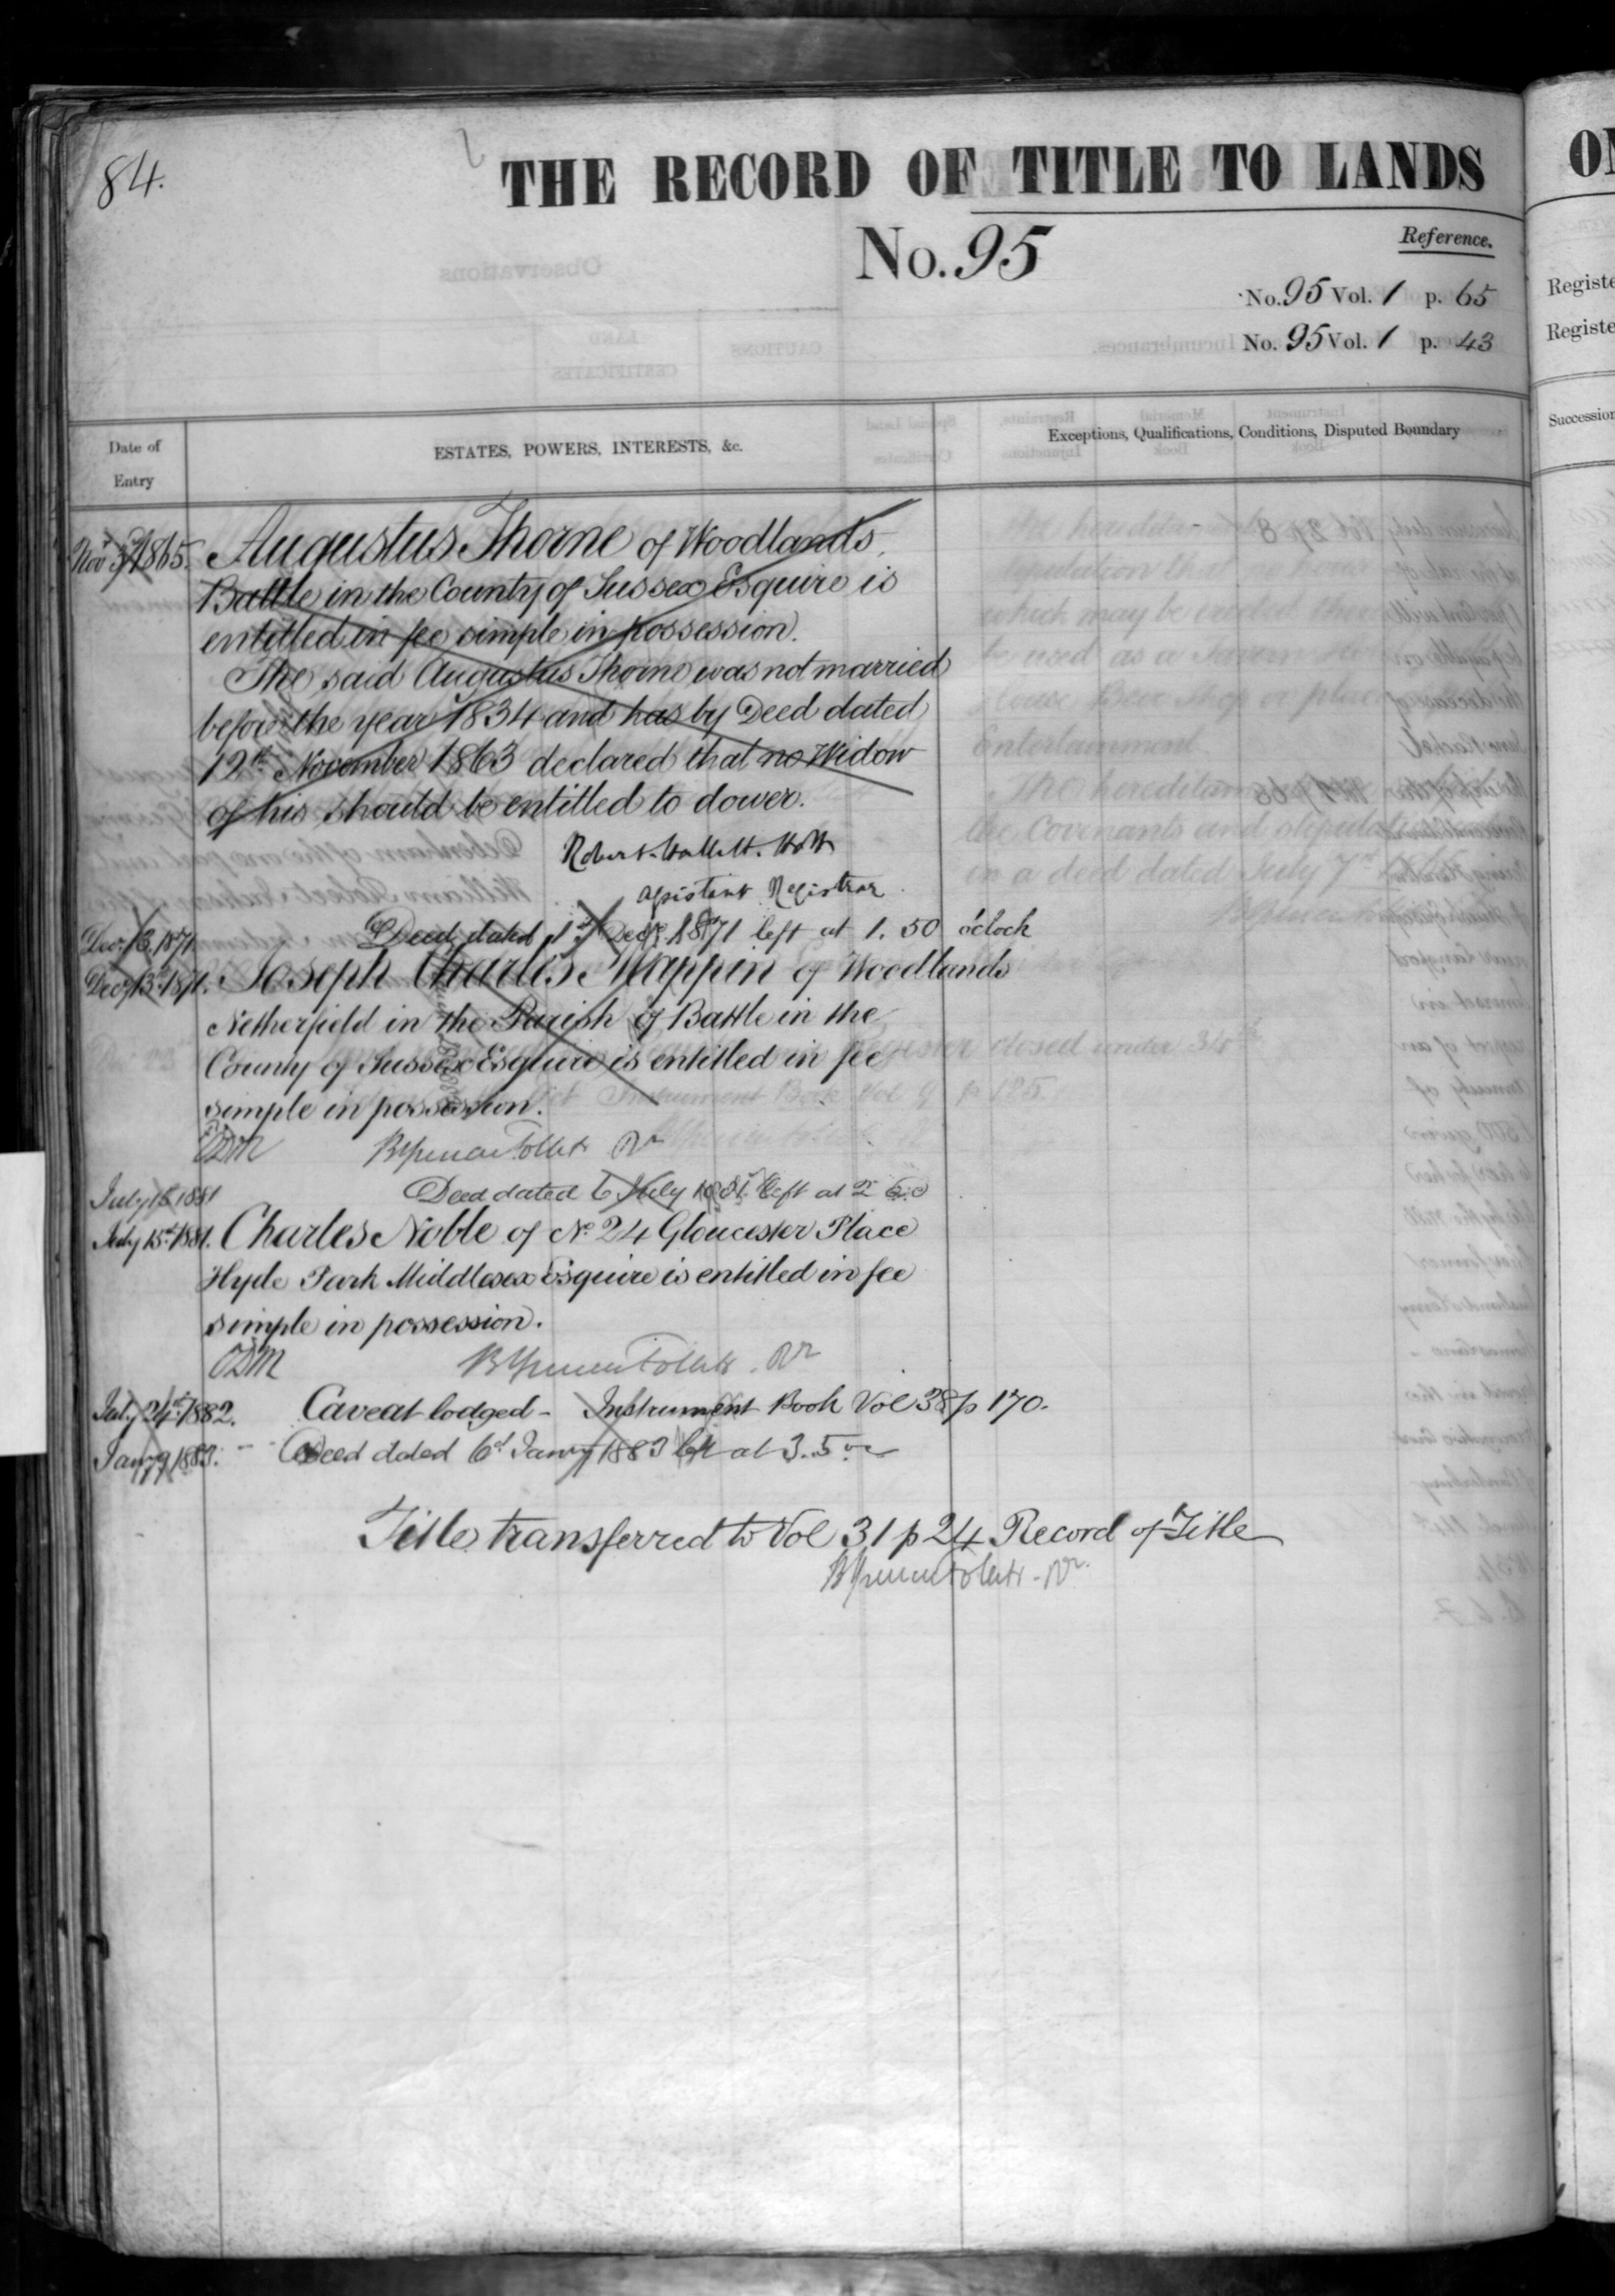 84.
THE RECORD OF TITLE TO LANDS
No. 95
Reference.
No. 95 Vol. 1 p. 65
No. 95 Vol. 1 p. 43
Date of
Entry
ESTATES, POWERS, INTERESTS, &c.
Exceptions, Qualifications, Conditions, Disputed Boundary
Nov 1865. Augustus Thorne of Woodlands,
Battle in the County of Sussex Esquire is
entitled in fee simple in possession.
The said Augustus Thorne was not married
before the year 1834 and has by Deed dated
12th November 1863 declared that no Widow
of his should be entitled to dower.
Robert Hallett Holt
Assistant Registrar
Decr 13. 1871 Deed dated 1st Decr 1871 left at 1.50 o'clock
Decr 13th 1871. Joseph Charles Mappin of Woodlands
Netherfield in the Parish of Battle in the
County of Sussex Esquire is entitled in fee
simple in possession.
Brent Spencer Follett Rr
July 1881 Deed dated 6 July 1881 left at
July 15th 1881. Charles Noble of No 24 Gloucester Place
Hyde Park Middlesex Esquire is entitled in fee
simple in possession.
BSpencer Follett Rr
July 24th 1882. Caveat lodged - Instrument Book Vol 38 p 170.
Jany 9 1883. Deed dated 6th Jany 1883 left at 3.5
Title transferred to Vol 31 p 24 Record of Title
BSpencer Follett - Rr.
ON
Registe
Registe
Succession